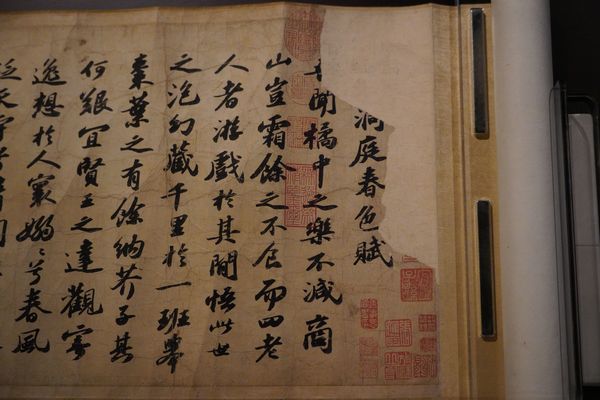 洞庭春色賦
聞橘中之樂不減商
山豈霜餘之不食而四老
人者游戲於其間悟此世
之泡幻藏千里於一班舉
棗葉之有餘納芥子其
何艱宜賢王之達觀寄
逸想於人寰嫋〻兮春風
泛天宇兮清閒